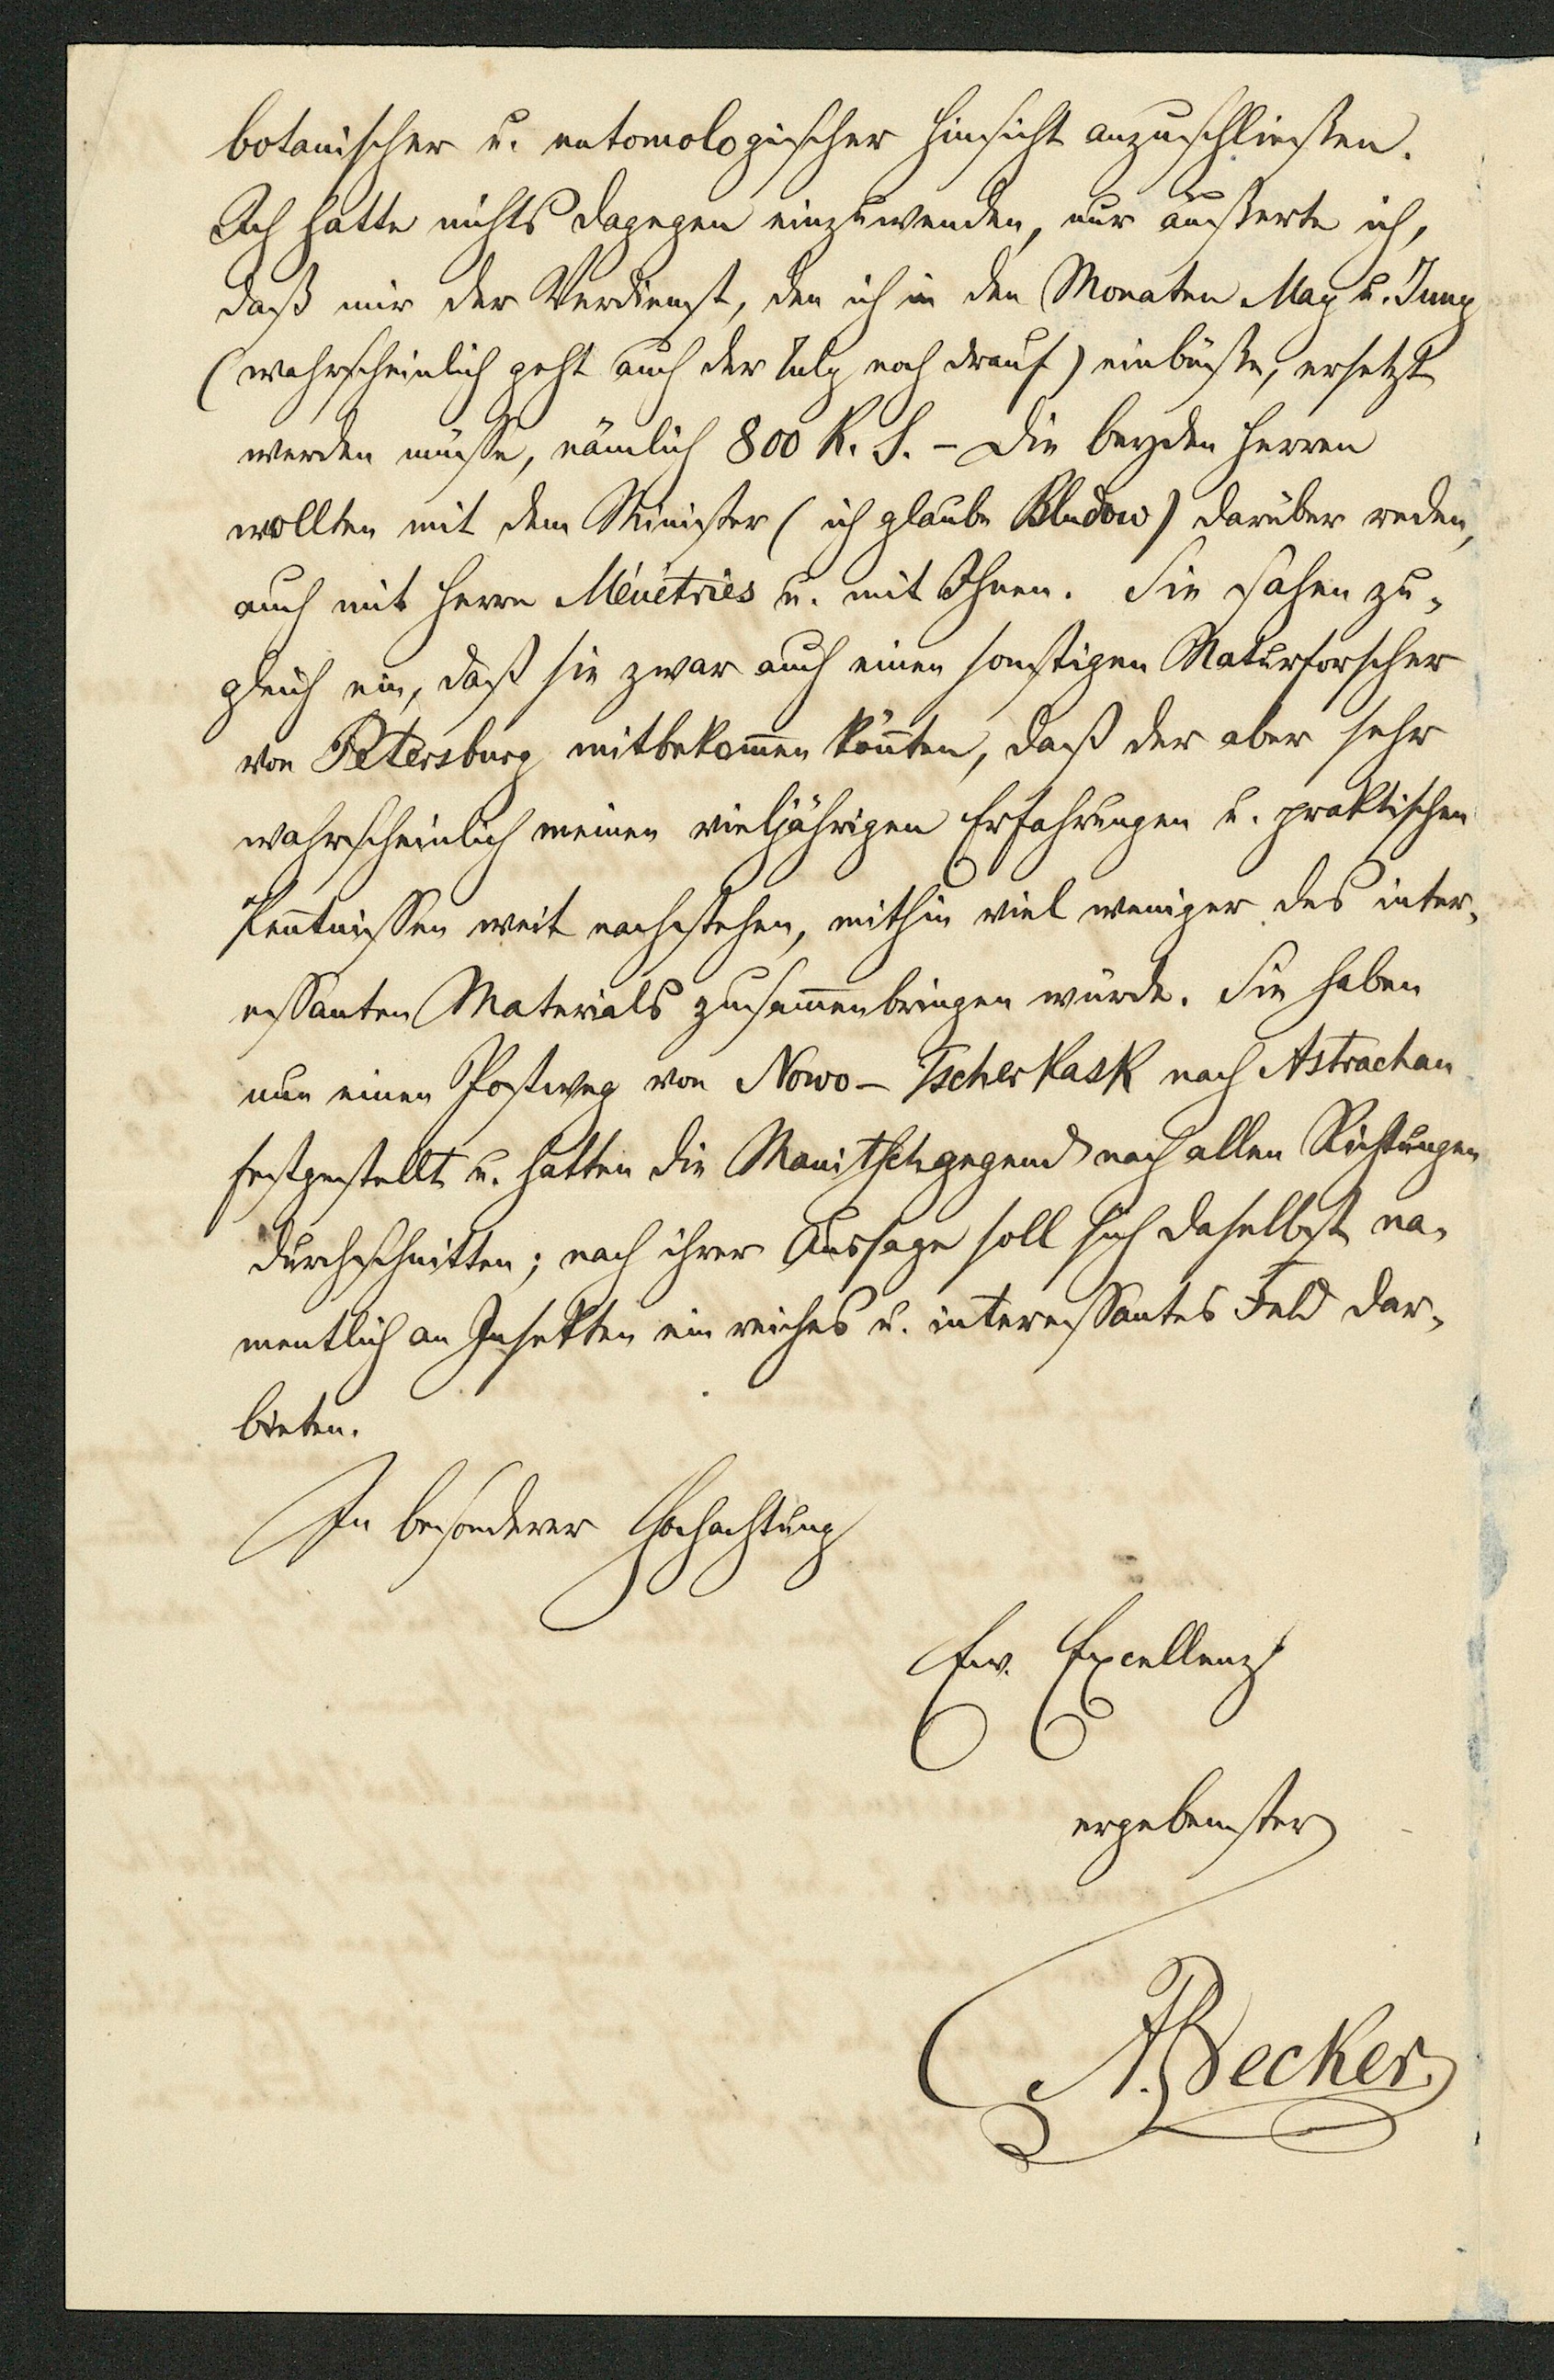 botanischer u. entomologischer Hinsicht anzuschließen.
Ich hatte nichts dagegen einzuwenden, nur äußerte ich,
daß mir der Verdienst, den ich in den Monaten May u. Juny
(wahrscheinlich geht auch der July noch drauf) einbüße, ersetzt
werden müsse, nämlich 800 R. S. – Die beyden Herren
wollten mit dem Minister (ich glaube Bludow) darüber reden,
auch mit Herrn Ménétries u. mit Ihnen. Sie sahen zu-
gleich ein, daß sie zwar auch einen sonstigen Naturforscher
von Petersburg mitbekom̅en kön̅ten, daß der aber sehr
wahrscheinlich meinen vieljährigen Erfahrungen u. praktischen
Ken̅tnissen weit nachstehen, mithin viel weniger des inter-
essanten Materials zusam̅enbringen würde. Sie haben
nun einen Postweg von Nowo-Tscherkask nach Astrachan
festgestellt u. hatten die Manitschgegend nach allen Richtungen
durchschnitten; nach ihrer Aussage soll sich daselbst na-
mentlich an Insekten ein reiches u. interessantes Feld dar-
bieten.
In besonderer Hochachtung
Ew. Excellenz
ergebenster
A. Becker.